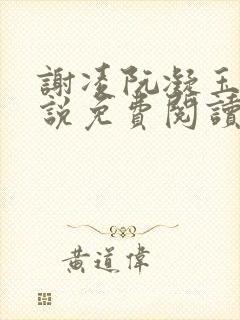 謝凌阮凝玉
說免費閱讀
黃道偉